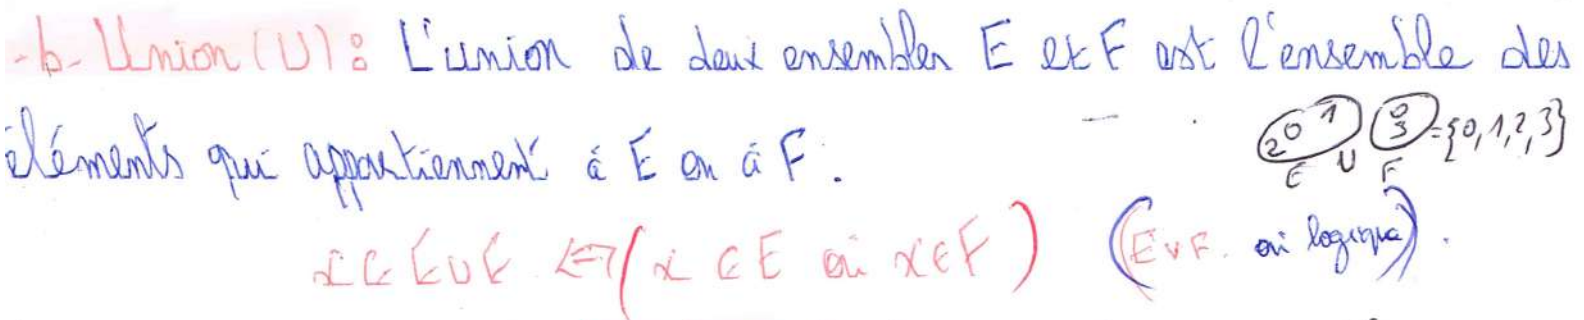 -b- Union (U) : L'union de deux ensembles E et F est l'ensemble des
éléments qui appartiennent à E ou à F.
2 0 1 0 3 = {0,1,2,3}
E U F
x ∈ E ∪ F <=> (x ∈ E ou x ∈ F) (E ∨ F. ou logique).